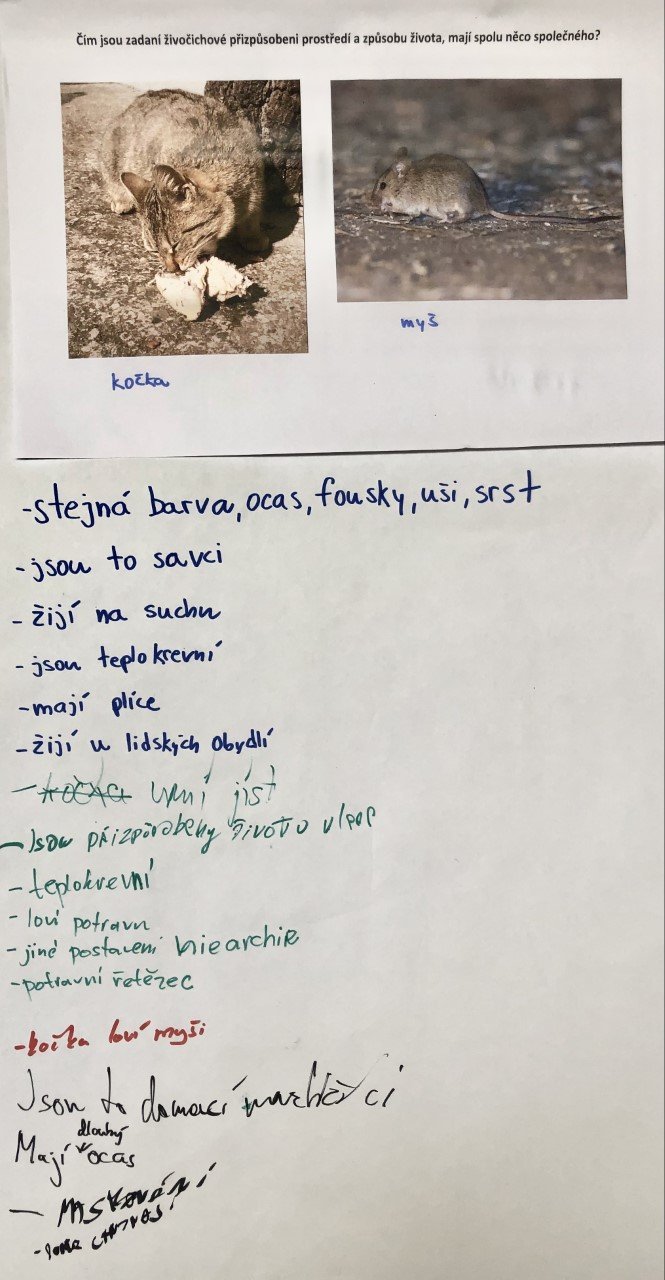 Čím jsou zadaní živočichové přizpůsobeni prostředí a způsobu života, mají spolu něco společného?
kočka
myš
-stejná barva, ocas, fousky, uši, srst
-jsou to savci
-žijí na suchu
-jsou teplokrevní
-mají plíce
-žijí u lidských obydlí
-kočka umí jíst
-Jsou přizpůsobeny životu v
-teplokrevní
-loví potravu
-jiné postavení hiearchie
-potravní řetězec
-kočka loví myši
Jsou to domací
Mají dlouhý ocas
- maskování